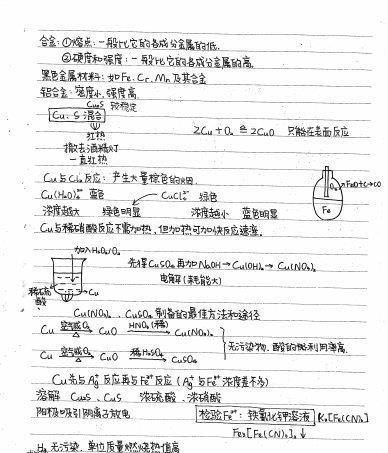 合金:①熔点:一般比它的各成分金属的低.
②硬度和强度:一般比它的各成分金属的高.
黑色金属材料:如Fe、Cr、Mn及其合金
铝合金:密度小,强度高.
Cu₂S 较稳定
Cu、S混合
红热
撤去酒精灯
一直红热
2Cu+O₂ ≜ 2CuO 只能在表面反应
Cu与Cl₂反应:产生大量棕色的烟.
Cu(H₂O)₄²⁺ 蓝色 CuCl₄²⁻ 绿色
浓度越大 绿色明显 浓度越小 蓝色明显
Cu与稀硝酸反应不需加热,但加热可加快反应速率.
Fe
加入H₂O₂/O₂
先得CuSO₄再加NaOH→Cu(OH)₂→Cu(NO₃)₂
电解(耗能大)
稀硫酸
Cu
Cu(NO₃)₂、CuSO₄制备的最佳方法和途径
Cu 空气或O₂ △ CuO HNO₃(稀) Cu(NO₃)₂
Cu 空气或O₂ △ CuO 稀H₂SO₄ CuSO₄
无污染物,酸的利用率高.
Cu先与Ag⁺反应再与Fe³⁺反应(Ag⁺与Fe³⁺浓度差不多)
溶解 CuS、Cu₂S 浓硫酸、浓硝酸
阳极吸引阴离子放电
检验Fe²⁺:铁氰化钾溶液 K₃[Fe(CN)₆]
Fe₃[Fe(CN)₆]₂↓
H₂ 无污染,单位质量燃烧热值高